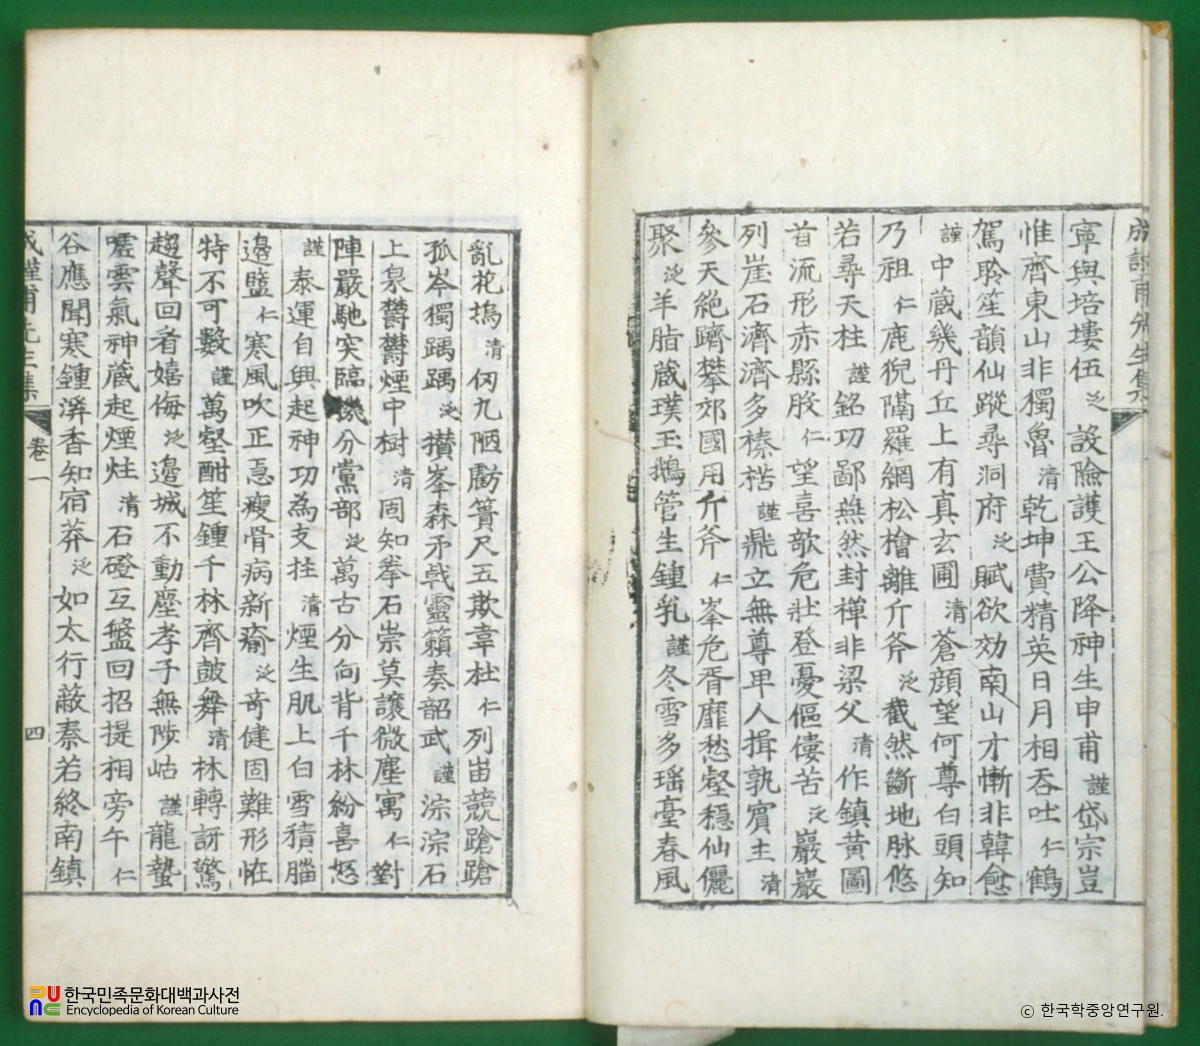 成謹甫先生集
寧與培塿伍 泛 設險護王公降神生申甫 謹 岱宗豈
惟齊東山非獨魯 清 乾坤費精英日月相吞吐 仁 鶴
駕聆笙韻仙蹤尋洞府 泛 賦欲効南山才慚非韓愈
謹 中藏幾丹丘上有真玄圃 清 蒼顔望何尊白頭知
乃祖 仁 鹿猊隔羅網松檜離斤斧 泛 截然斷地脉悠
若尋天柱 謹 銘功鄙燕然封禅非梁父 清 作鎮黃圖
首流形赤縣股 仁 望喜歌危壯登憂傴僂苦 泛 巖巖
列崖石濟濟多榛楛 謹 鼎立無尊卑人揖孰賓主 清
參天絶躋攀郊國用斤斧 仁 峯危胥靡愁壑穩仙儷
聚 泛 羊脂蔵璞玉鵝管生鍾乳 謹 冬雪多瑶臺春風
亂花塢 清 仞九陋虧簣尺五欺韋杜 仁 列岫競蹌蹌
孤岑獨踽踽 泛 攅峯森矛戟靈籟奏韶武 謹 淙淙石
上泉欝欝煙中樹 清 固知拳石崇莫讓微塵寓 仁 對
陣嚴馳突臨機分黨部 泛 萬古分向背千林紛喜怒
謹 泰運自興起神功為支拄 清 煙生肌上白雪積腦
邉盬 仁 寒風吹正急瘦骨病新瘉 泛 奇健固難形恠
特不可數 謹 萬壑酣笙鍾千林齊皷舞 清 林轉訝驚
趨聲回看嬉侮 泛 邉城不動塵孝子無陟岵 謹 龍蟄
嘘雲氣神蔵起煙炷 清 石磴互盤回招提相旁午 仁
谷應聞寒鍾溪香知宿莽 泛 如太行蔽秦若終南鎮
成謹甫先生集 卷一 四
한국민족문화대백과사전
Encyclopedia of Korean Culture
© 한국학중앙연구원.